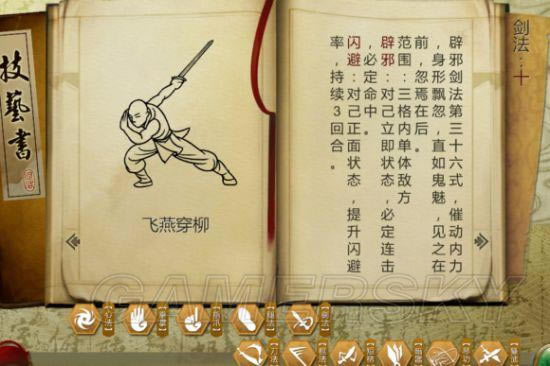 技藝書
飞燕穿柳
剑法：十
辟邪剑法第三十六式，催动内力
，身形飘忽，直如鬼魅，见之在
前，忽焉在后。
范围：三格内单体敌方
辟邪：对己立即状态，必定连击
，必定命中。
闪避：对己正面状态，提升闪避
率，持续3回合。
GAMERSKY
【心法】
【拳掌】
【指爪】
【腿法】
【剑法】
【刀法】
【棍法】
【短柄】
【暗器】